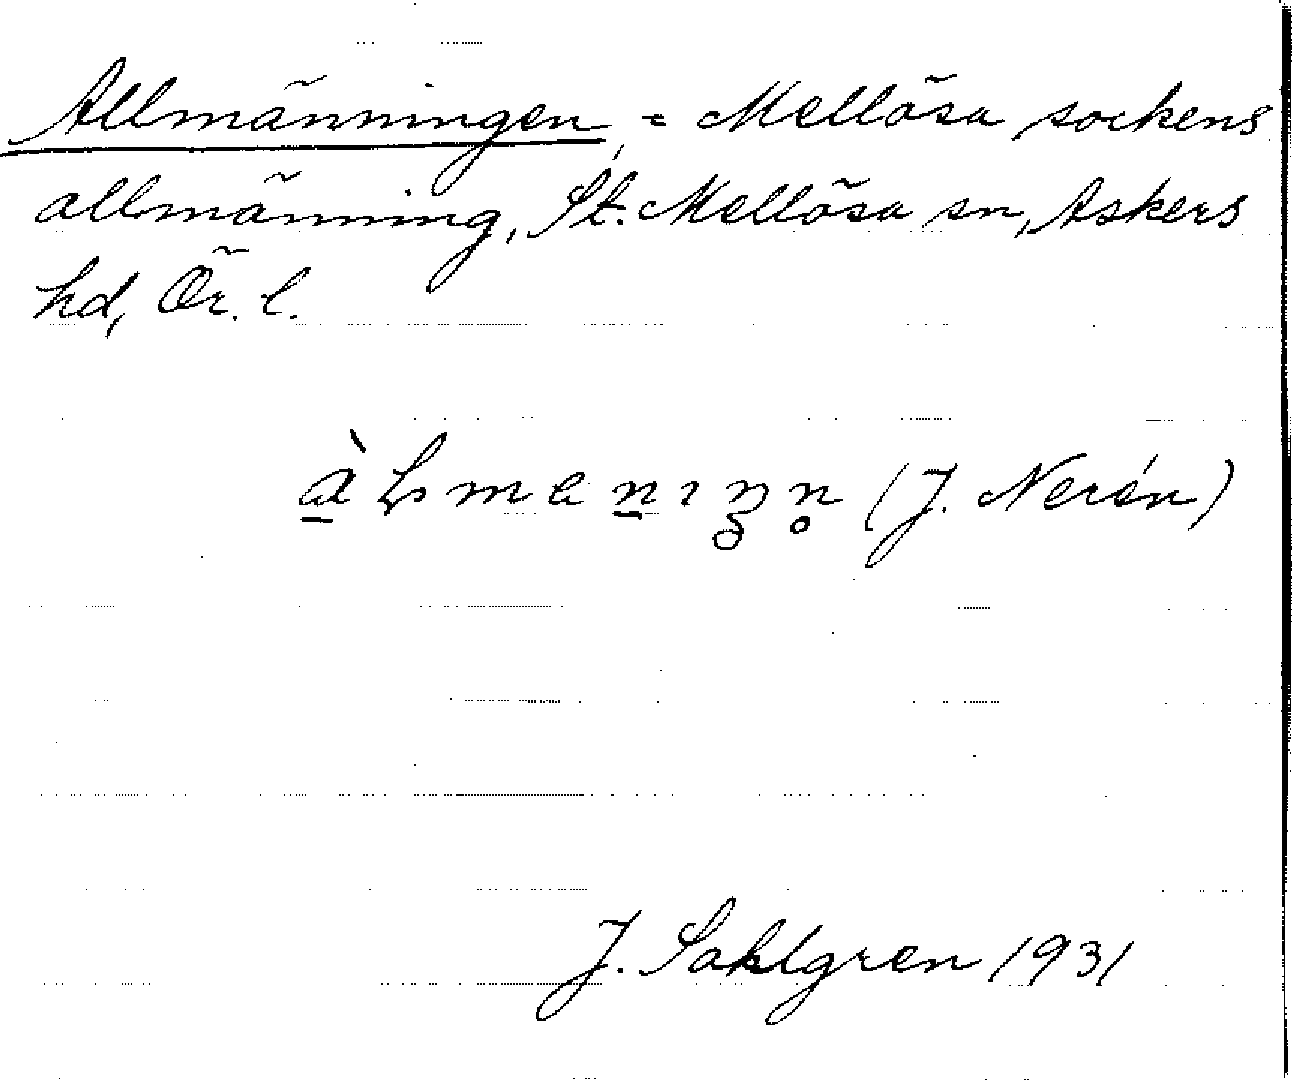 Allmänningen, = Mellösa sockens
allmänning, St. Mellösa sn, Askers
hd, Ör. l.
(J. Nerén)
J. Sahlgren 1931